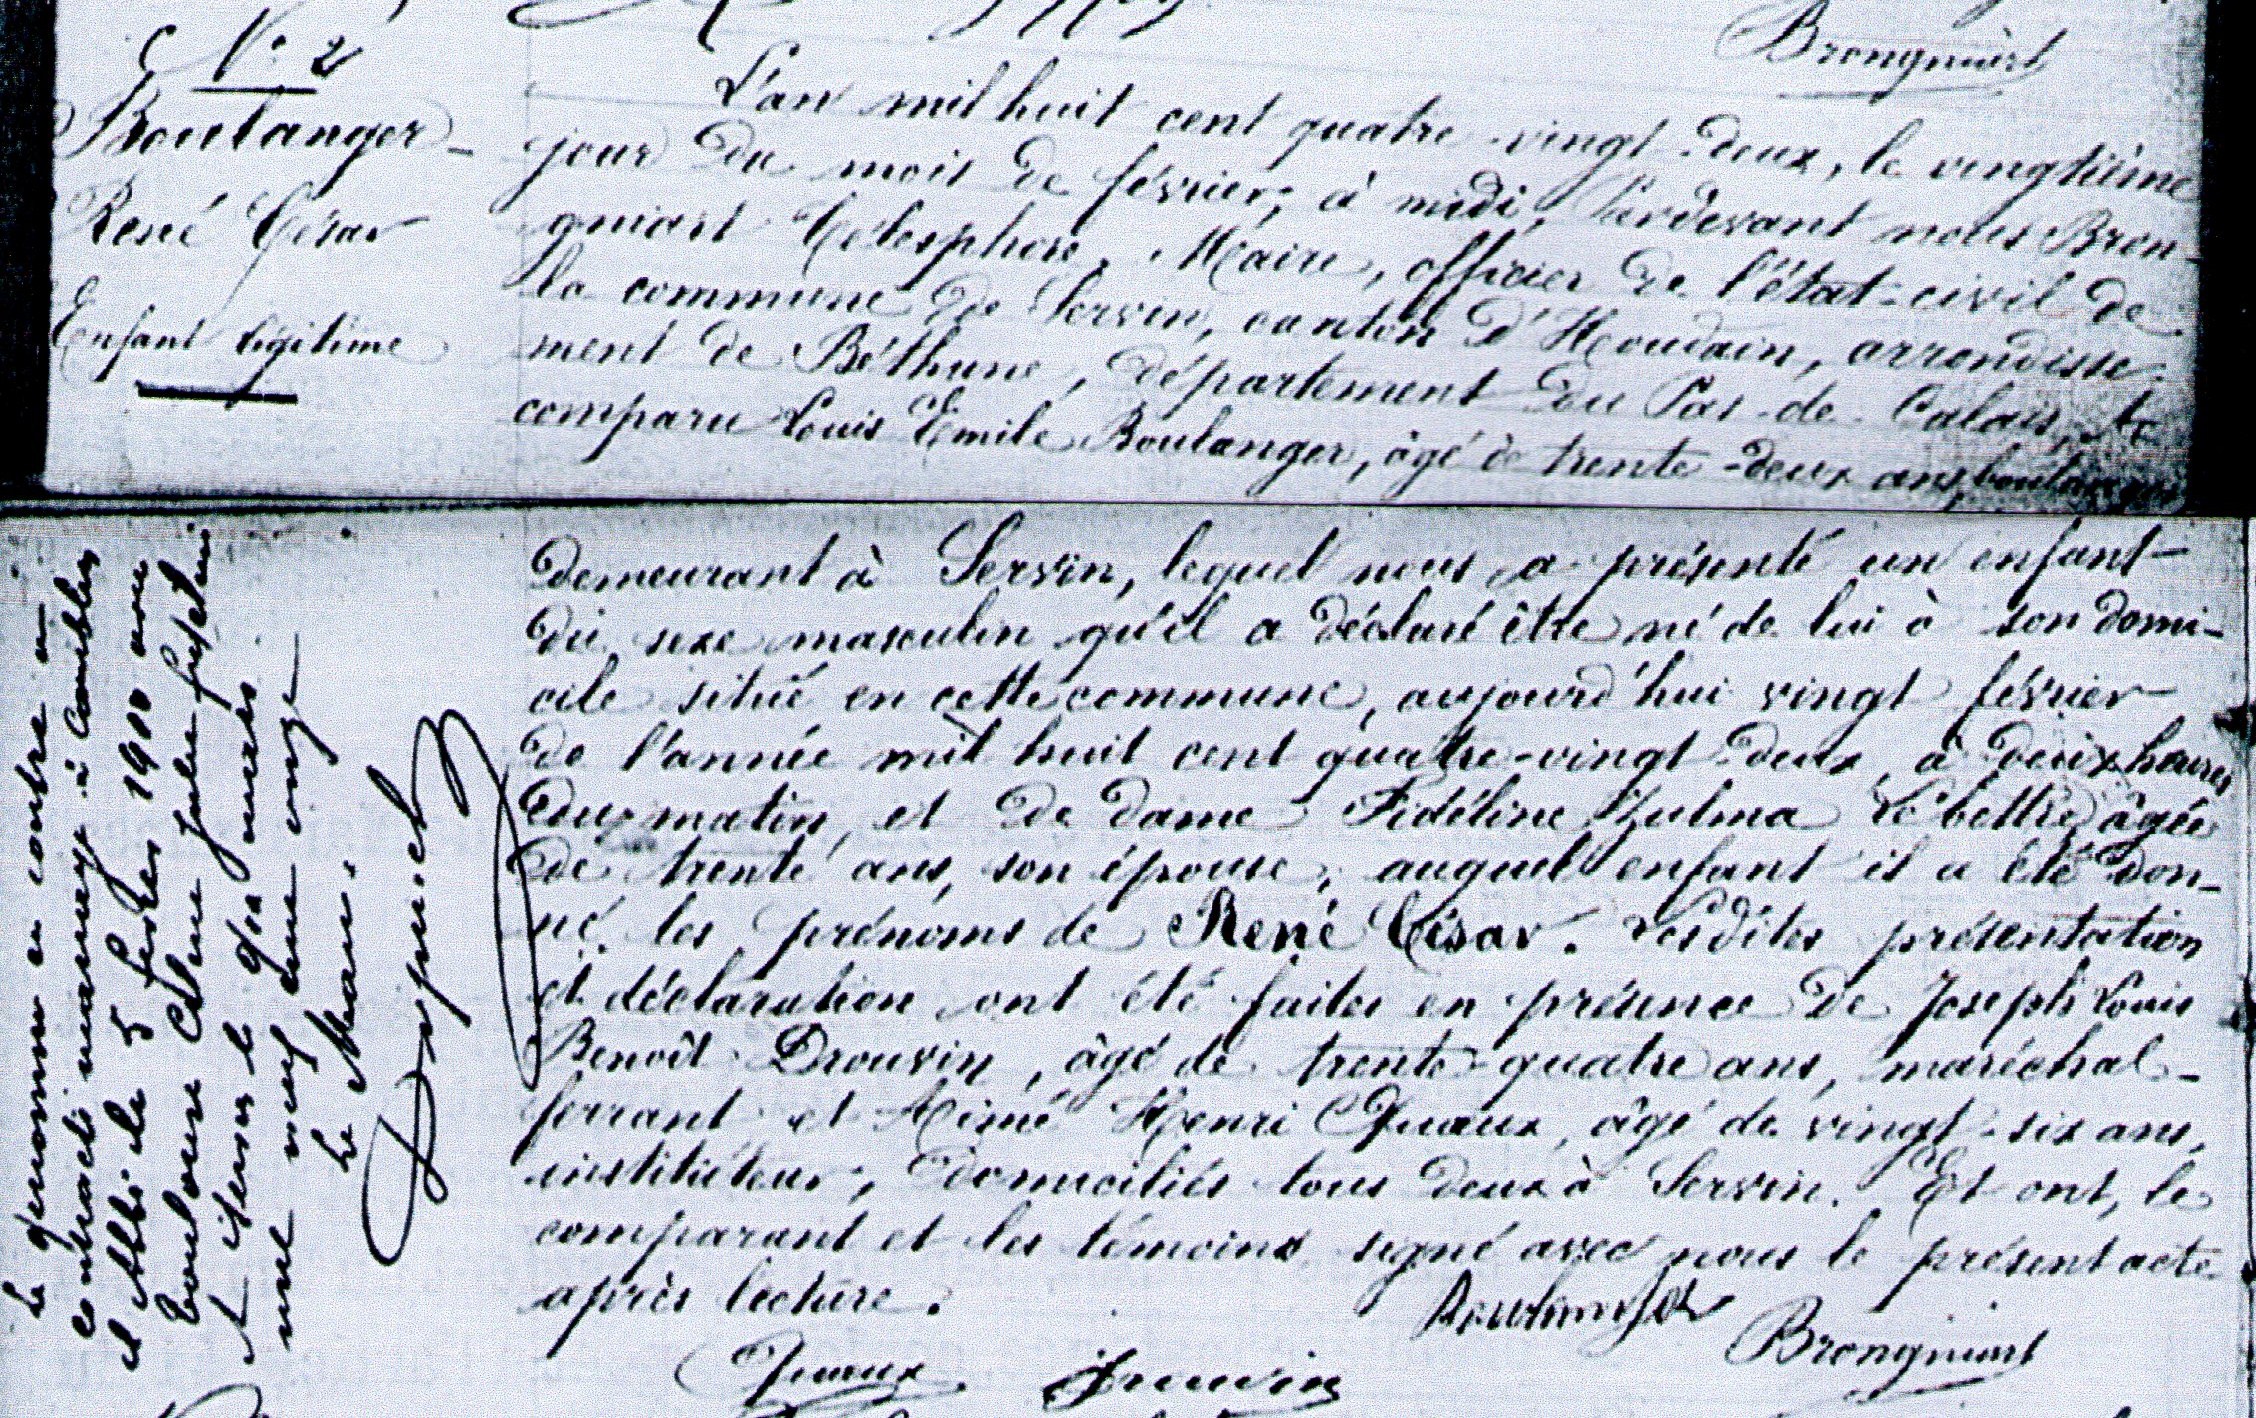 Brongniart
N° 2
Boulanger
René César
Enfant légitime
L'an mil huit cent quatre-vingt-deux, le vingtième
jour du mois de février, à midi, Pardevant nous Bron-
gniart Télesphore, Maire, officier de l'état-civil de
la commune de Servin, canton d'Houdain, arrondisse-
ment de Béthune, département du Pas-de-Calais, a
comparu Louis Emile Boulanger, âgé de trente-deux ans, boulanger
demeurant à Servin, lequel nous a présenté un enfant
du sexe masculin qu'il a déclaré être né de lui à son domi-
cile situé en cette commune, aujourd'hui vingt février
de l'année mil huit cent quatre-vingt-deux, à deux heures
du matin, et de dame Fidéline Zulma âgée
de trente ans, son épouse, auquel enfant il a été don-
né les prénoms de René César. Lesdites présentation
et déclaration ont été faites en présence de Joseph Louis
Benoît Drouvin, âgé de trente-quatre ans, maréchal-
ferrant et Aimé Henri Queaux, âgé de vingt-six ans,
instituteur, domiciliés tous deux à Servin. Et ont, le
comparant et les témoins signé avec nous le présent acte
après lecture.
Boulanger
Brongniart
Queaux Drouvin
Le
contracté mariage à Combles
et le 5 1910 avec
Toulouse
A Servin le mars
mil neuf cent onze
Le Maire,